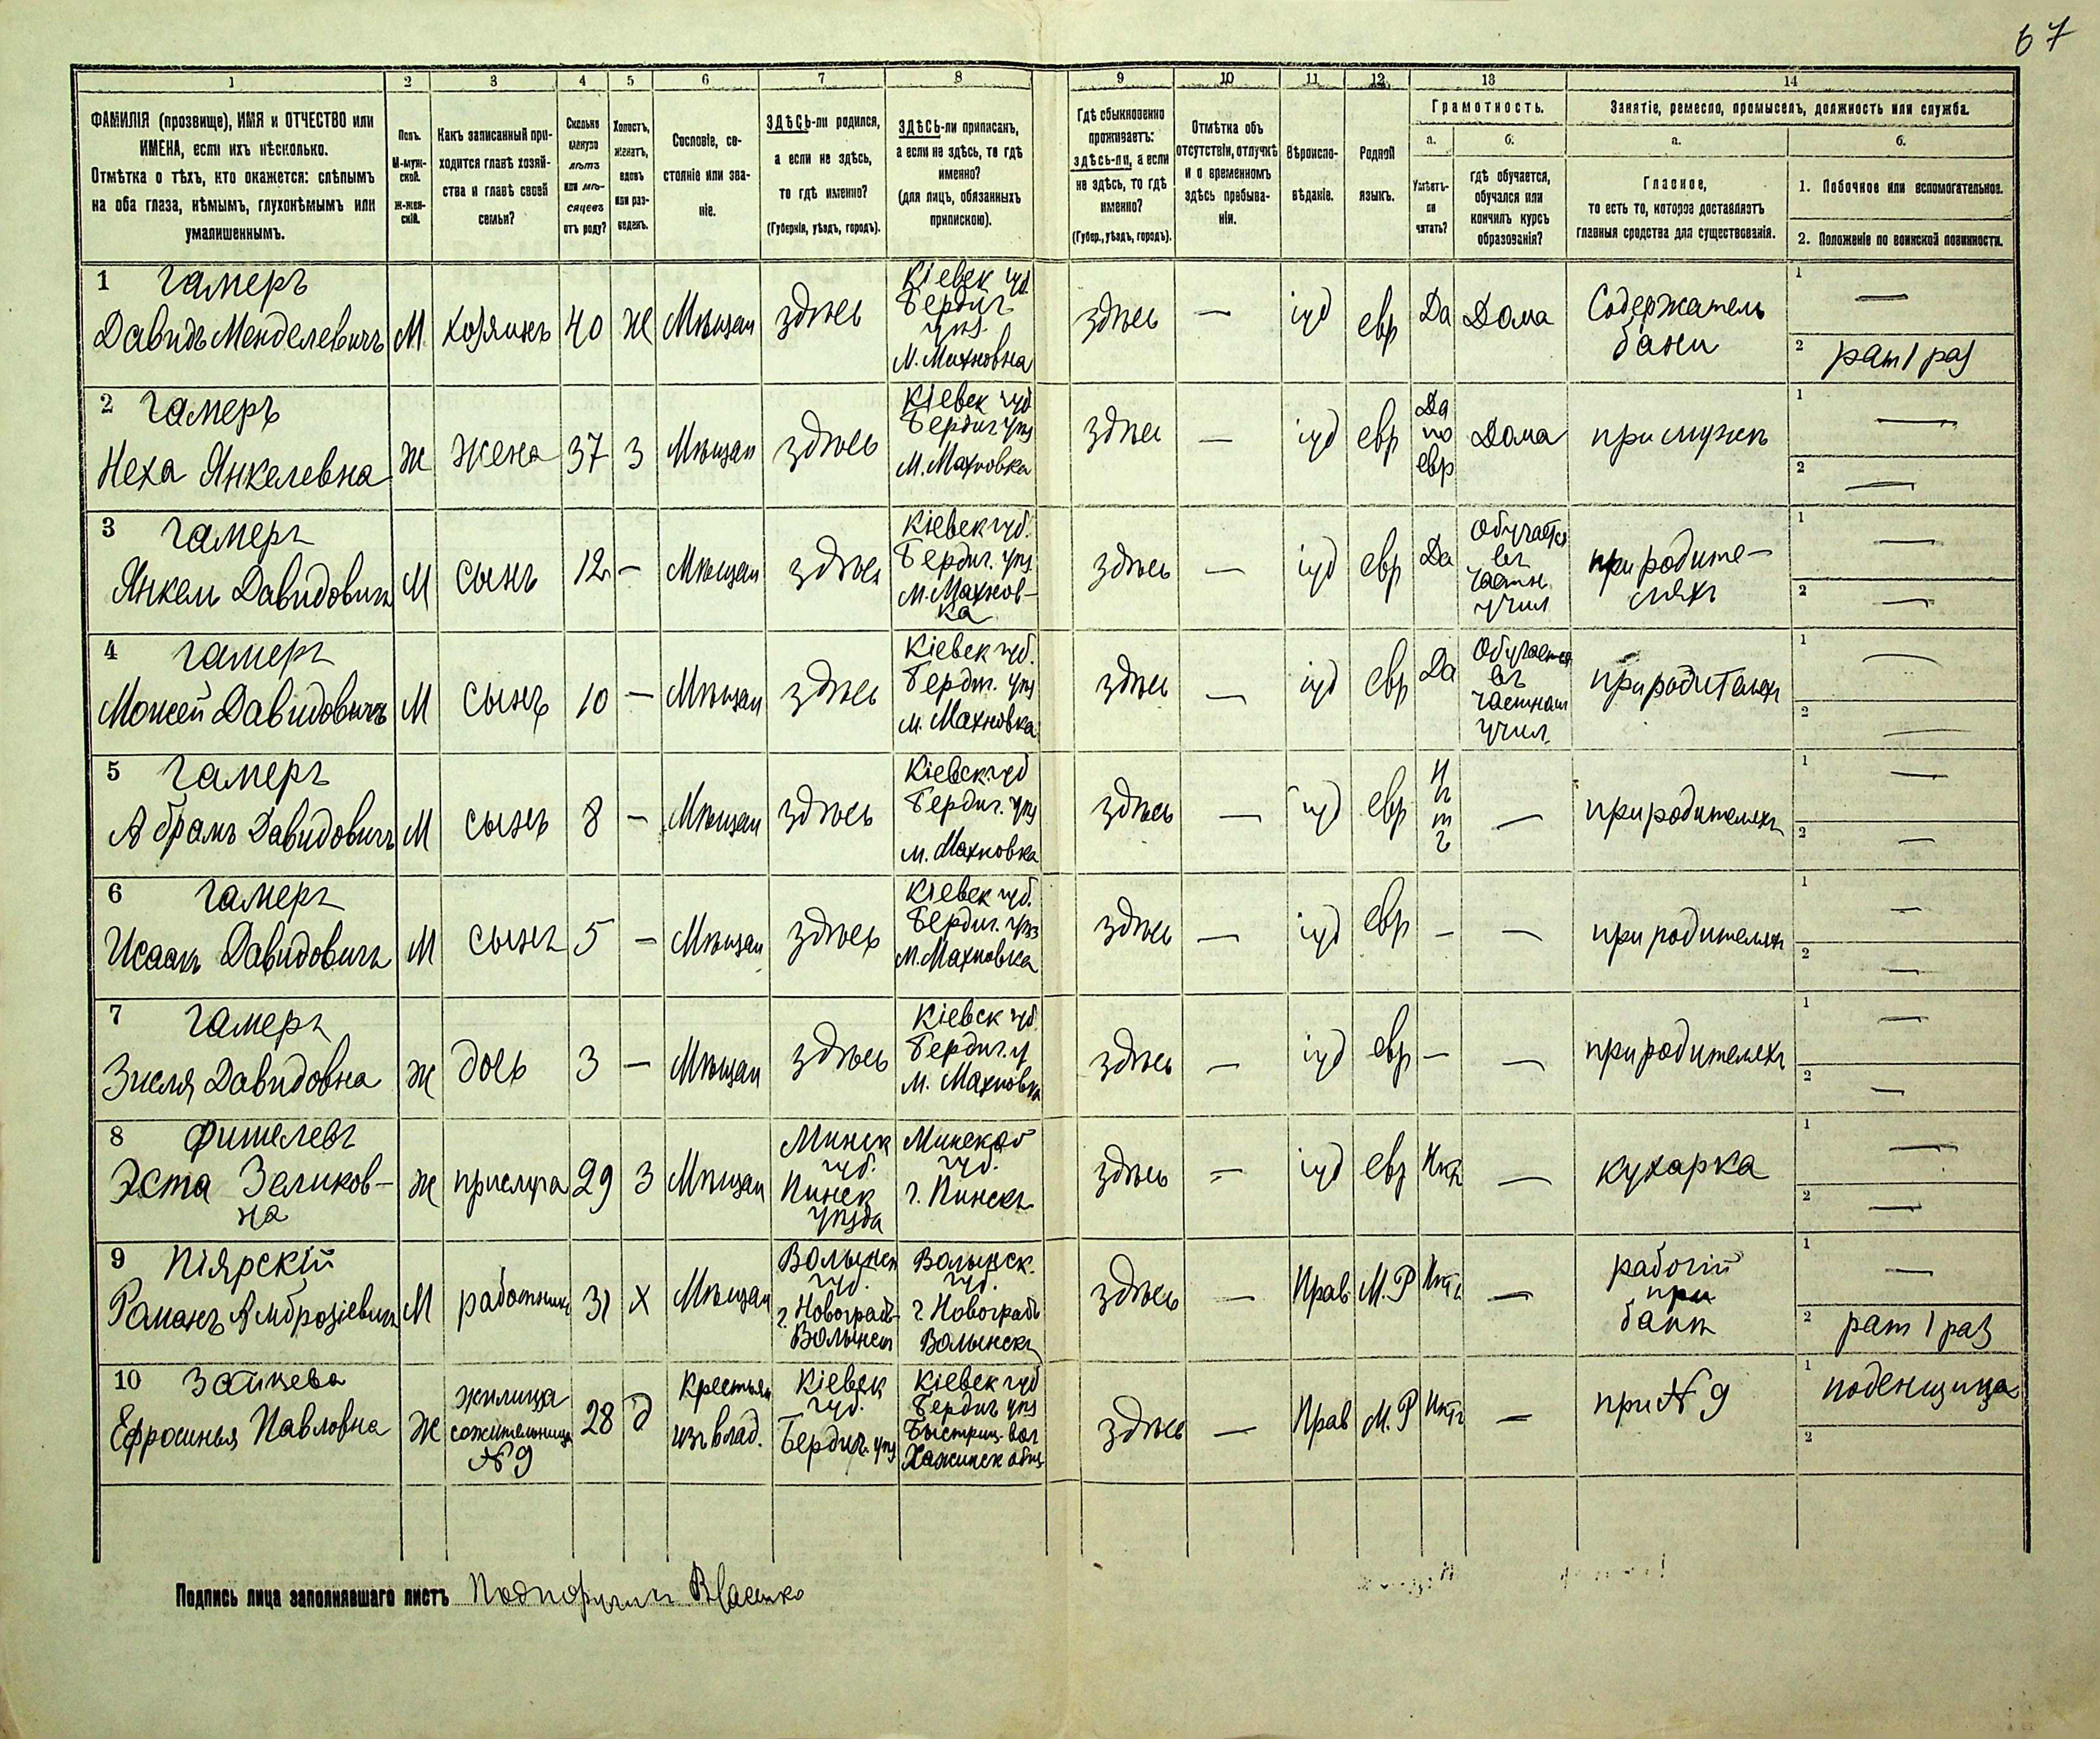 67
1
2
3
4
5
6
7
8
9
10
11
12
13
14
ФАМИЛІЯ (прозвище), ИМЯ и ОТЧЕСТВО или
ИМЕНА, если ихъ нѣсколько.
Отмѣтка о тѣхъ, кто окажется: слѣпымъ
на оба глаза, нѣмымъ, глухонѣмымъ или
умалишеннымъ.
Полъ.
М-муж-
ской.
Ж-жен-
скій.
Какъ записанный при-
ходится главѣ хозяй-
ства и главѣ своей
семьи?
Сколько
минуло
лѣтъ
или мѣ-
сяцевъ
отъ роду?
Холостъ,
женатъ,
вдовъ
или раз-
веденъ.
Сословіе, со-
стояніе или зва-
ніе.
ЗДѢСЬ-ли родился,
а если не здѣсь,
то гдѣ именно?
(Губернія, уѣздъ, городъ).
ЗДѢСЬ-ли приписанъ,
а если не здѣсь, то гдѣ
именно?
(для лицъ, обязанныхъ
припискою).
Гдѣ обыкновенно
проживаетъ:
здѣсь-ли, а если
не здѣсь, то гдѣ
именно?
(Губер., уѣздъ, городъ).
Отмѣтка объ
отсутствіи, отлучкѣ
и о временномъ
здѣсь пребыва-
ніи.
Вѣроиспо-
вѣданіе.
Родной
языкъ.
Грамотность.
а.
Умѣетъ-
ли
читать?
б.
гдѣ обучается,
обучался или
кончилъ курсъ
образованія?
Занятіе, ремесло, промыселъ, должность или служба.
а.
Главное,
то есть то, которое доставляетъ
главныя средства для существованія.
б.
1. Побочное или вспомогательное.
2. Положеніе по воинской повинности.
1 Гамеръ
Давидъ Менделевичъ
М
хозяинъ
40
Ж
Мѣщан
здѣсь
Кіевск губ
Бердич
уѣз.
М. Махновка
здѣсь
—
іуд
евр
Да
Дома
Содержатель
бани
1 —
2 рат 1 раз
2 Гамеръ
Неха Янкелевна
Ж
жена
37
З
Мѣщан
здѣсь
Кіевск губ
Бердич уѣз
М. Махновка
здѣсь
—
іуд
евр
Да
по
евр
Дома
при мужѣ
1 —
2 —
3 Гамеръ
Янкель Давидовичъ
М
сынъ
12
—
Мѣщан
здѣсь
Кіевск губ.
Бердич. уѣз
М. Махнов-
ка
здѣсь
—
іуд
евр
Да
Обучается
въ
частн.
учил
при родите-
ляхъ
1 —
2 —
4 Гамеръ
Мошей Давидовичъ
М
сынъ
10
—
Мѣщан
здѣсь
Кіевск губ.
Бердич. уѣз
м. Махновка
здѣсь
—
іуд
евр
Да
Обучается
въ
частном
учил.
при родителяхъ
1 —
2 —
5 Гамеръ
Абрамъ Давидовичъ
М
сынъ
8
—
Мѣщан
здѣсь
Кіевск губ
Бердич. уѣз
м. Махновка
здѣсь
—
іуд
евр
Н
ѣ
т
ъ
—
при родителяхъ
1 —
2 —
6 Гамеръ
Исаакъ Давидовичъ
М
сынъ
5
—
Мѣщан
здѣсь
Кіевск губ.
Бердич. уѣз
М. Махновка
здѣсь
—
іуд
евр
—
—
при родителяхъ
1 —
2 —
7 Гамеръ
Зисля Давидовна
Ж
дочь
3
—
Мѣщан
здѣсь
Кіевск губ
Бердич. у
М. Махновка
здѣсь
—
іуд
евр
—
—
при родителяхъ
1 —
2 —
8
Эста Зеликов-
на
Ж
прислуга
29
З
Мѣщан
Минск
губ.
Пинск
уѣзда
Минской
губ.
г. Пинскъ
здѣсь
—
іуд
евр
Нѣтъ
—
кухарка
1 —
2 —
9 Піярскій
Романъ Амброзіевичъ
М
работникъ
31
Х
Мѣщан
Волынск
губ.
г. Новоградъ-
Волынск
Волынск.
губ.
г. Новоградъ
Волынскъ
здѣсь
—
Прав
М.Р
Нѣтъ
—
рабочій
при
банѣ
1 —
2 рат 1 раз
10 Зайцева
Ефросинья Павловна
Ж
жилица
сожительница
№ 9
28
д
Крестьян
изъ влад.
Кіевск
губ.
Бердич. уѣз
Кіевск губ
Бердич уѣз
Быстриц. вол
Хажинск общ.
здѣсь
—
Прав
М.Р
Нѣтъ
—
при № 9
1 поденщица
2
Подпись лица заполнявшаго листъ Подпоручикъ